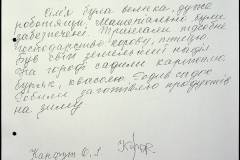 Сім'я була велика, дуже
роботящи, матеріально були
забезпечені. Тримали підсобне
господарство корову, птицю.
Був свій земельний наділ
На городі садили картоплю,
буряк, квасолю. Ходив садок
Робили заготовлю продуктів
на зиму.